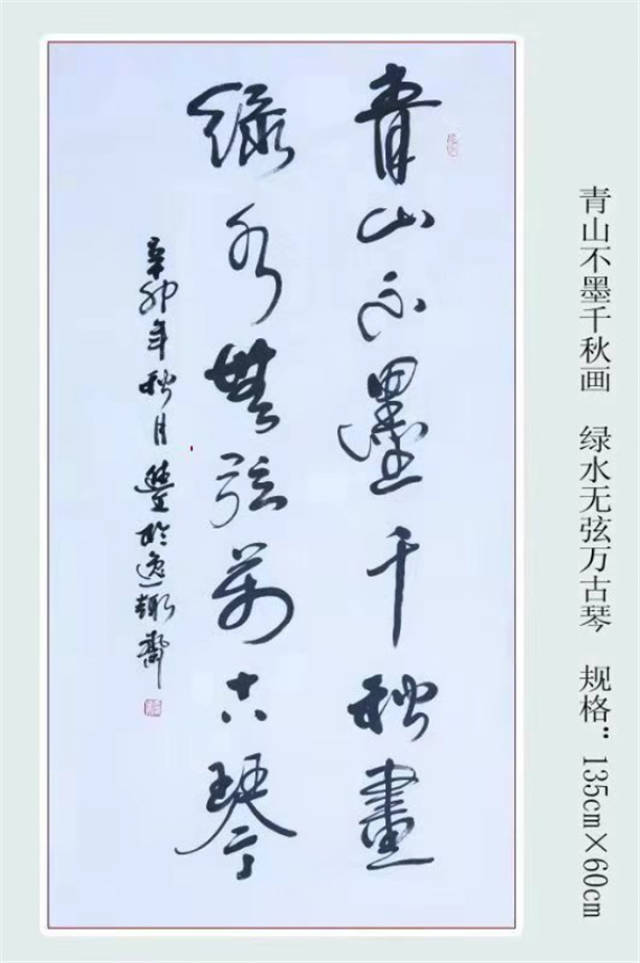 青山不墨千秋畫
綠水無弦萬古琴
辛卯年秋月 於逸趣齋
青山不墨千秋画 绿水无弦万古琴 规格：135cm×60cm